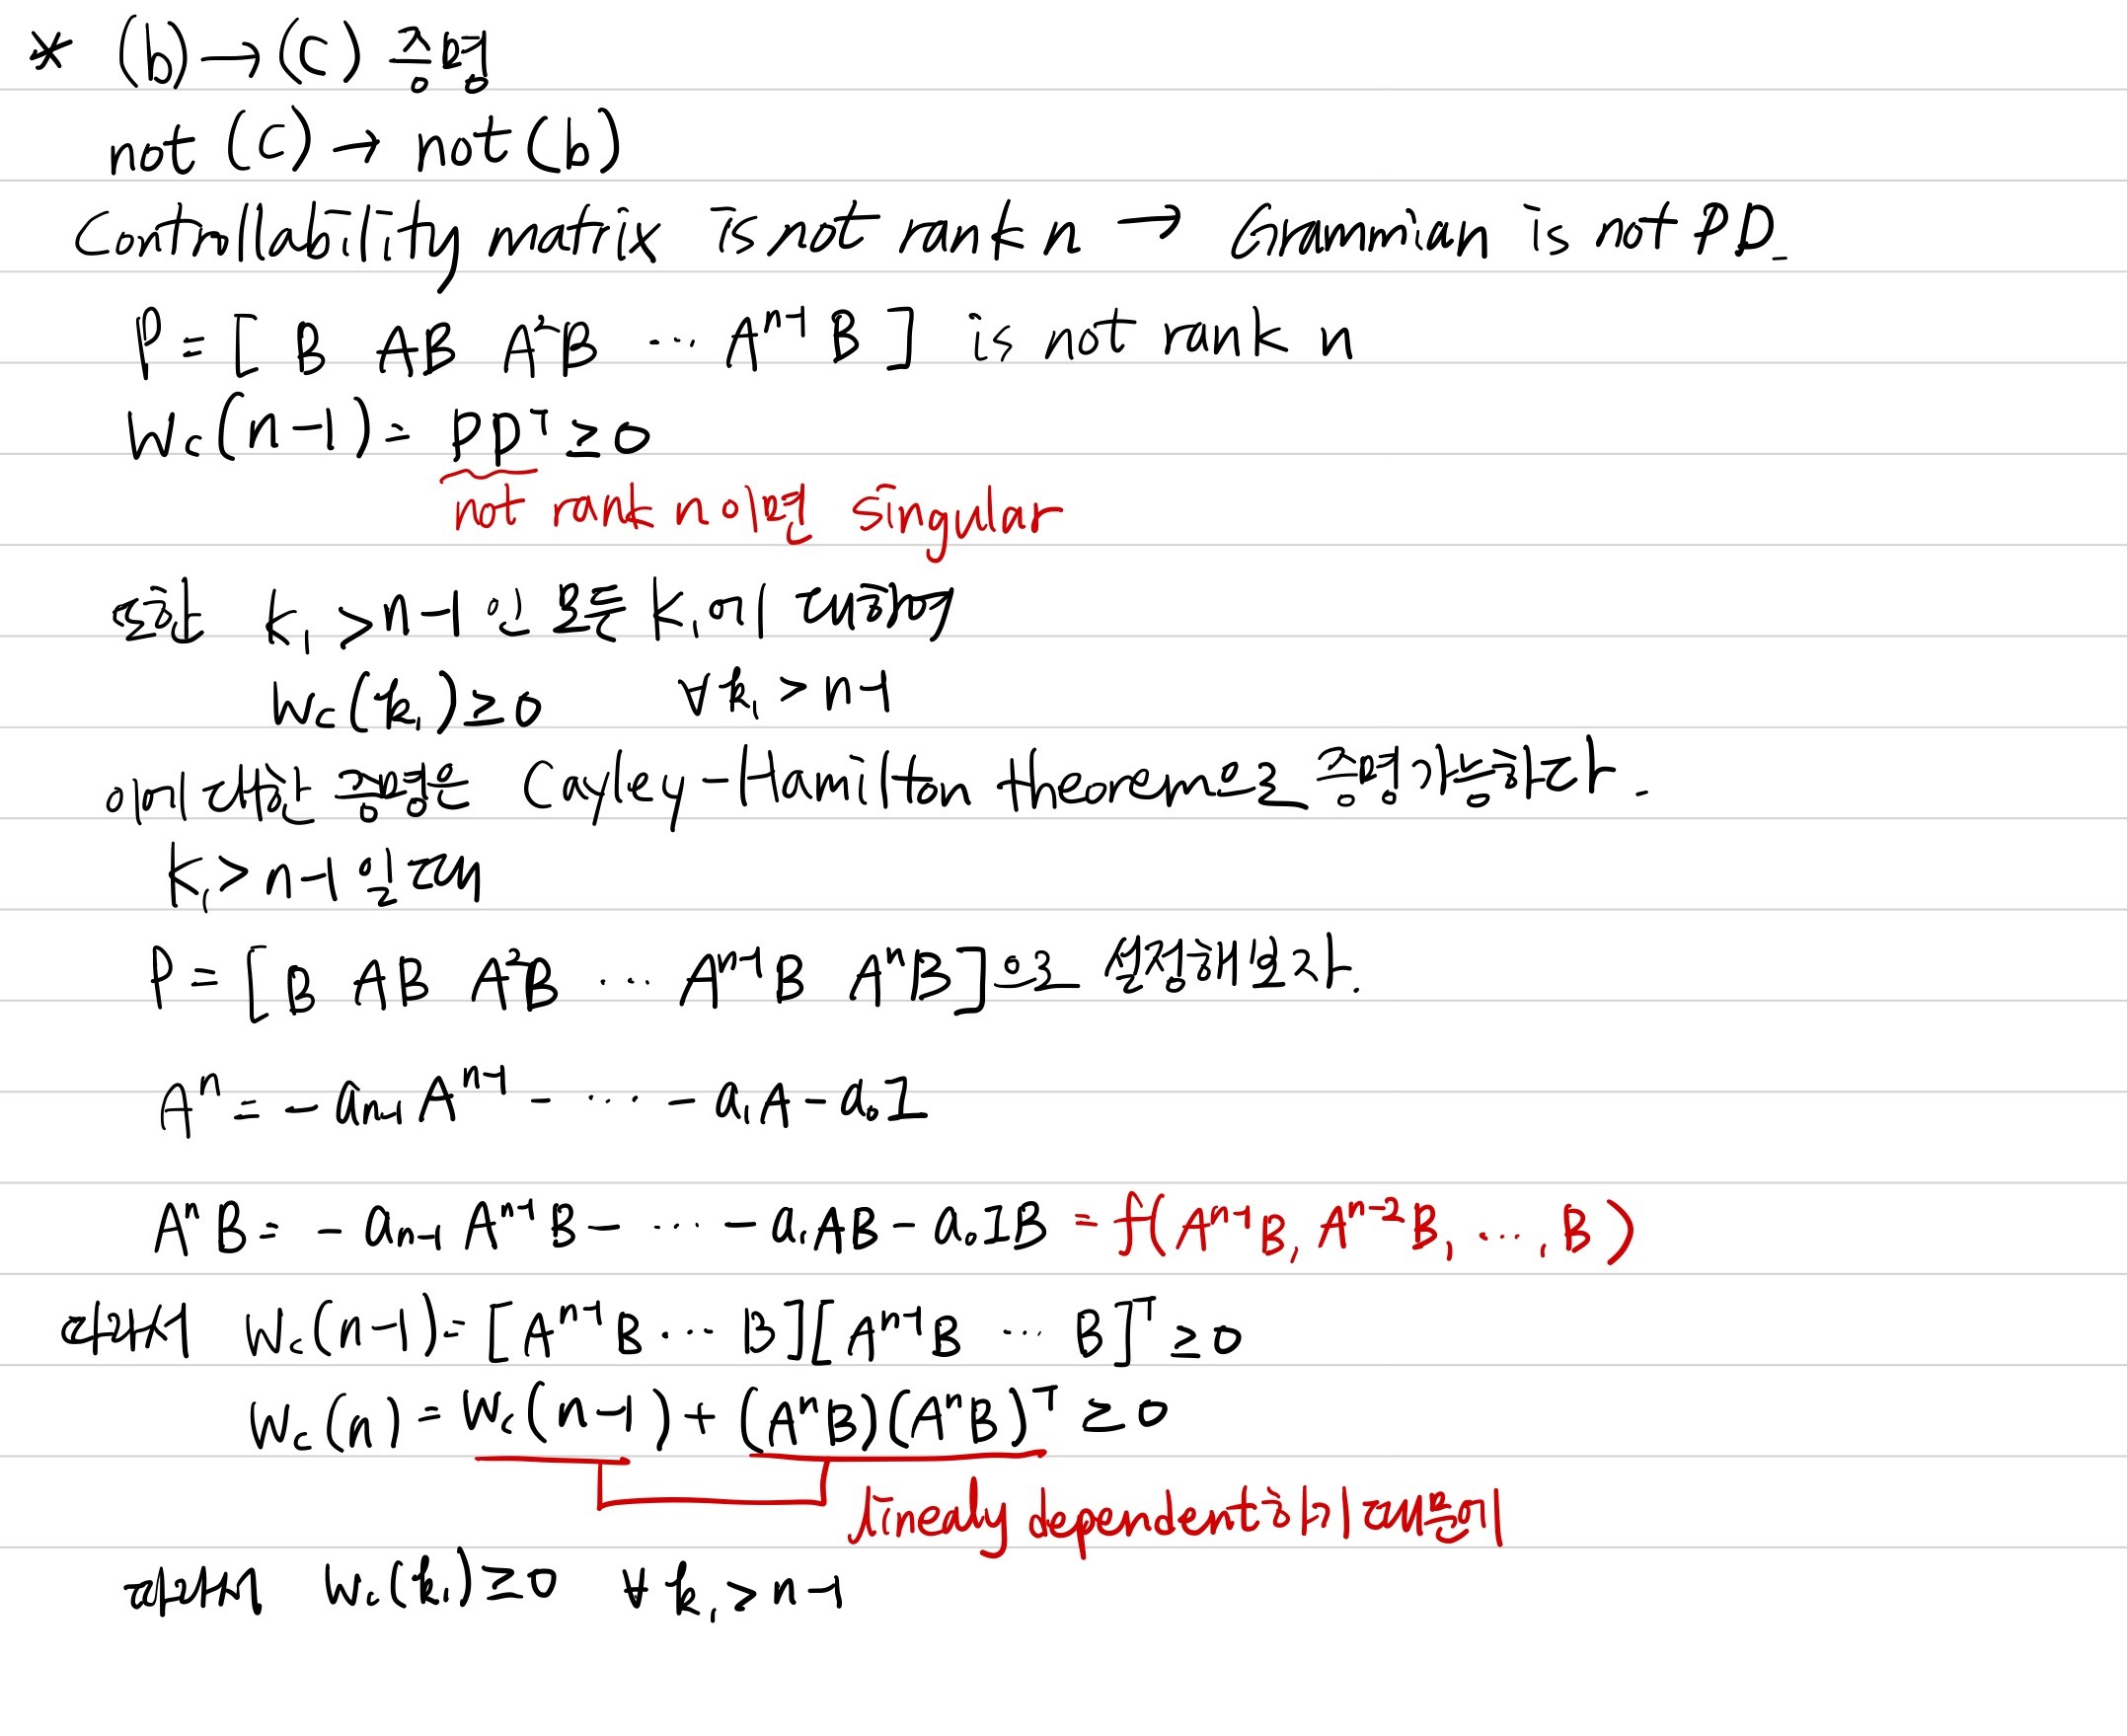 * (b) → (c) 증명
not (c) → not (b)
Controllability matrix is not rank n → Grammian is not PD.
P = [ B AB A²B ⋯ Aⁿ⁻¹B ] is not rank n
W_c(n-1) = PPᵀ ≥ 0
not rank n이면 singular
또한 k₁ > n-1 인 모든 k₁에 대하여
W_c(k₁) ≥ 0 ∀k₁ > n-1
이에 대한 증명은 Cayley-Hamilton theorem으로 증명가능하다.
k₁ > n-1 일 때
P = [B AB A²B ⋯ Aⁿ⁻¹B AⁿB]으로 설정해보자.
Aⁿ = - aₙ₋₁Aⁿ⁻¹ - ⋯ - a₁A - a₀I
AⁿB = - aₙ₋₁Aⁿ⁻¹B - ⋯ - a₁AB - a₀IB = f(Aⁿ⁻¹B, Aⁿ⁻²B, ⋯, B)
따라서 W_c(n-1) = [Aⁿ⁻¹B ⋯ B][Aⁿ⁻¹B ⋯ B]ᵀ ≥ 0
W_c(n) = W_c(n-1) + (AⁿB)(AⁿB)ᵀ ≥ 0
linealy dependent하기 때문에
따라서 W_c(k₁) ≥ 0 ∀k₁ > n-1